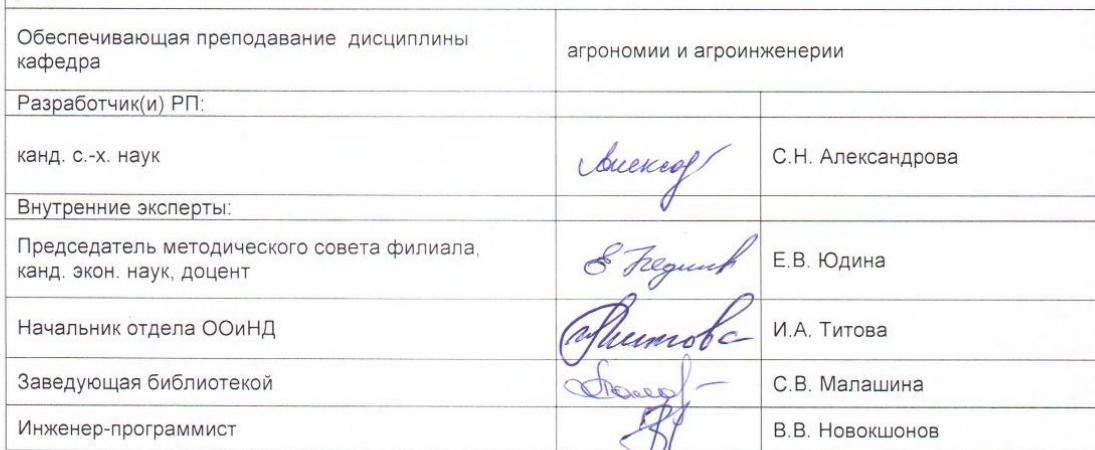 Обеспечивающая преподавание дисциплины
кафедра
агрономии и агроинженерии
Разработчик(и) РП:
канд. с.-х. наук
С.Н. Александрова
Внутренние эксперты:
Председатель методического совета филиала,
канд. экон. наук, доцент
Е.В. Юдина
Начальник отдела ООиНД
И.А. Титова
Заведующая библиотекой
С.В. Малашина
Инженер-программист
В.В. Новокшонов